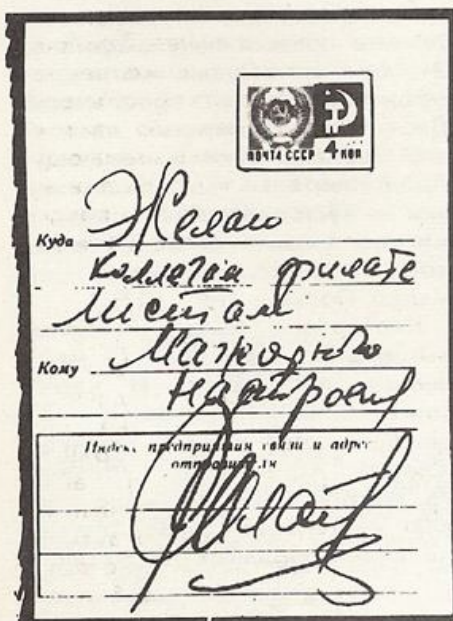 ПОЧТА СССР 4 КОП
Куда Желаю
коллегам филате
листам
Кому Мажорного
Настроения
Индекс предприятия связи и адрес
отправителя